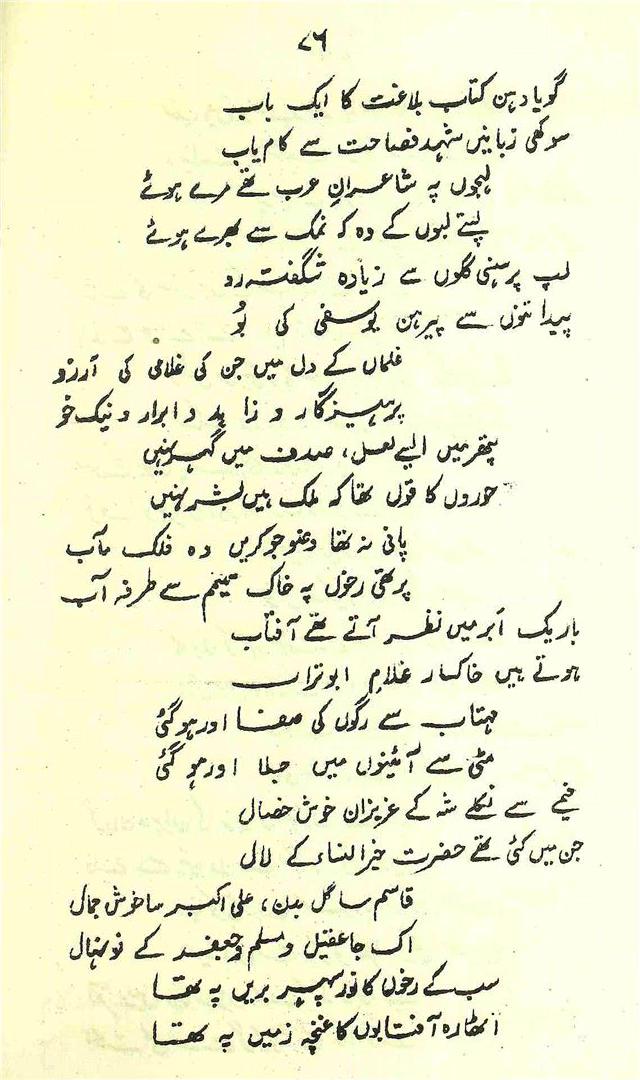 ۷۶
گویا دہن کتاب بلاغت کا ایک باب
سوکھی زبانیں شہد فصاحت سے کام یاب
لہجوں پہ شاعرانِ عرب تھے مرے ہوئے
پستے لبوں کے وہ کہ نمک سے بھرے ہوئے
لب پر ہنسی گلوں سے زیادہ شگفتہ رو
پیدا تنوں سے پیرہن یوسفی کی بُو
غلماں کے دل میں جن کی غلامی کی آرزو
پرہیزگار و زاہد و ابرار و نیک خو
پتھر میں ایسے لعل، صدف میں گہر نہیں
حوروں کا قول تھا کہ ملک ہیں بشر نہیں
پانی نہ تھا وضو جو کریں وہ فلک مآب
پر تھی رخوں پہ خاک تیمم سے طرفہ آب
باریک ابر میں نظر آتے تھے آفتاب
ہوتے ہیں خاکسار غلامِ ابوتراب
مہتاب سے رگوں کی صفا اور ہو گئی
مٹی سے آئینوں میں جلا اور ہو گئی
خیمے سے نکلے شہ کے عزیزان خوش خصال
جن میں کئی تھے حضرت خیرالنساء کے لال
قاسم سا گل بدن، علی اکبر سا خوش جمال
اک جا عقیل و مسلم و جعفر کے نونہال
سب کے رخوں کا نور سپہر بریں پہ تھا
اٹھارہ آفتابوں کا غنچہ زمیں پہ تھا